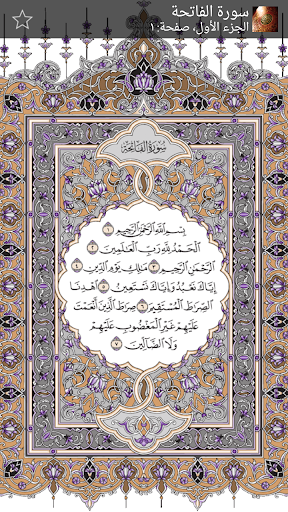 سورة الفاتحة
الجزء الأول، صفحة:١
سُورَةُ الفَاتِحَةِ
بِسْمِ اللَّهِ الرَّحْمَٰنِ الرَّحِيمِ ١
الْحَمْدُ لِلَّهِ رَبِّ الْعَالَمِينَ ٢
الرَّحْمَٰنِ الرَّحِيمِ ٣ مَالِكِ يَوْمِ الدِّينِ ٤
إِيَّاكَ نَعْبُدُ وَإِيَّاكَ نَسْتَعِينُ ٥ اهْدِنَا
الصِّرَاطَ الْمُسْتَقِيمَ ٦ صِرَاطَ الَّذِينَ أَنْعَمْتَ
عَلَيْهِمْ غَيْرِ الْمَغْضُوبِ عَلَيْهِمْ
وَلَا الضَّالِّينَ ٧